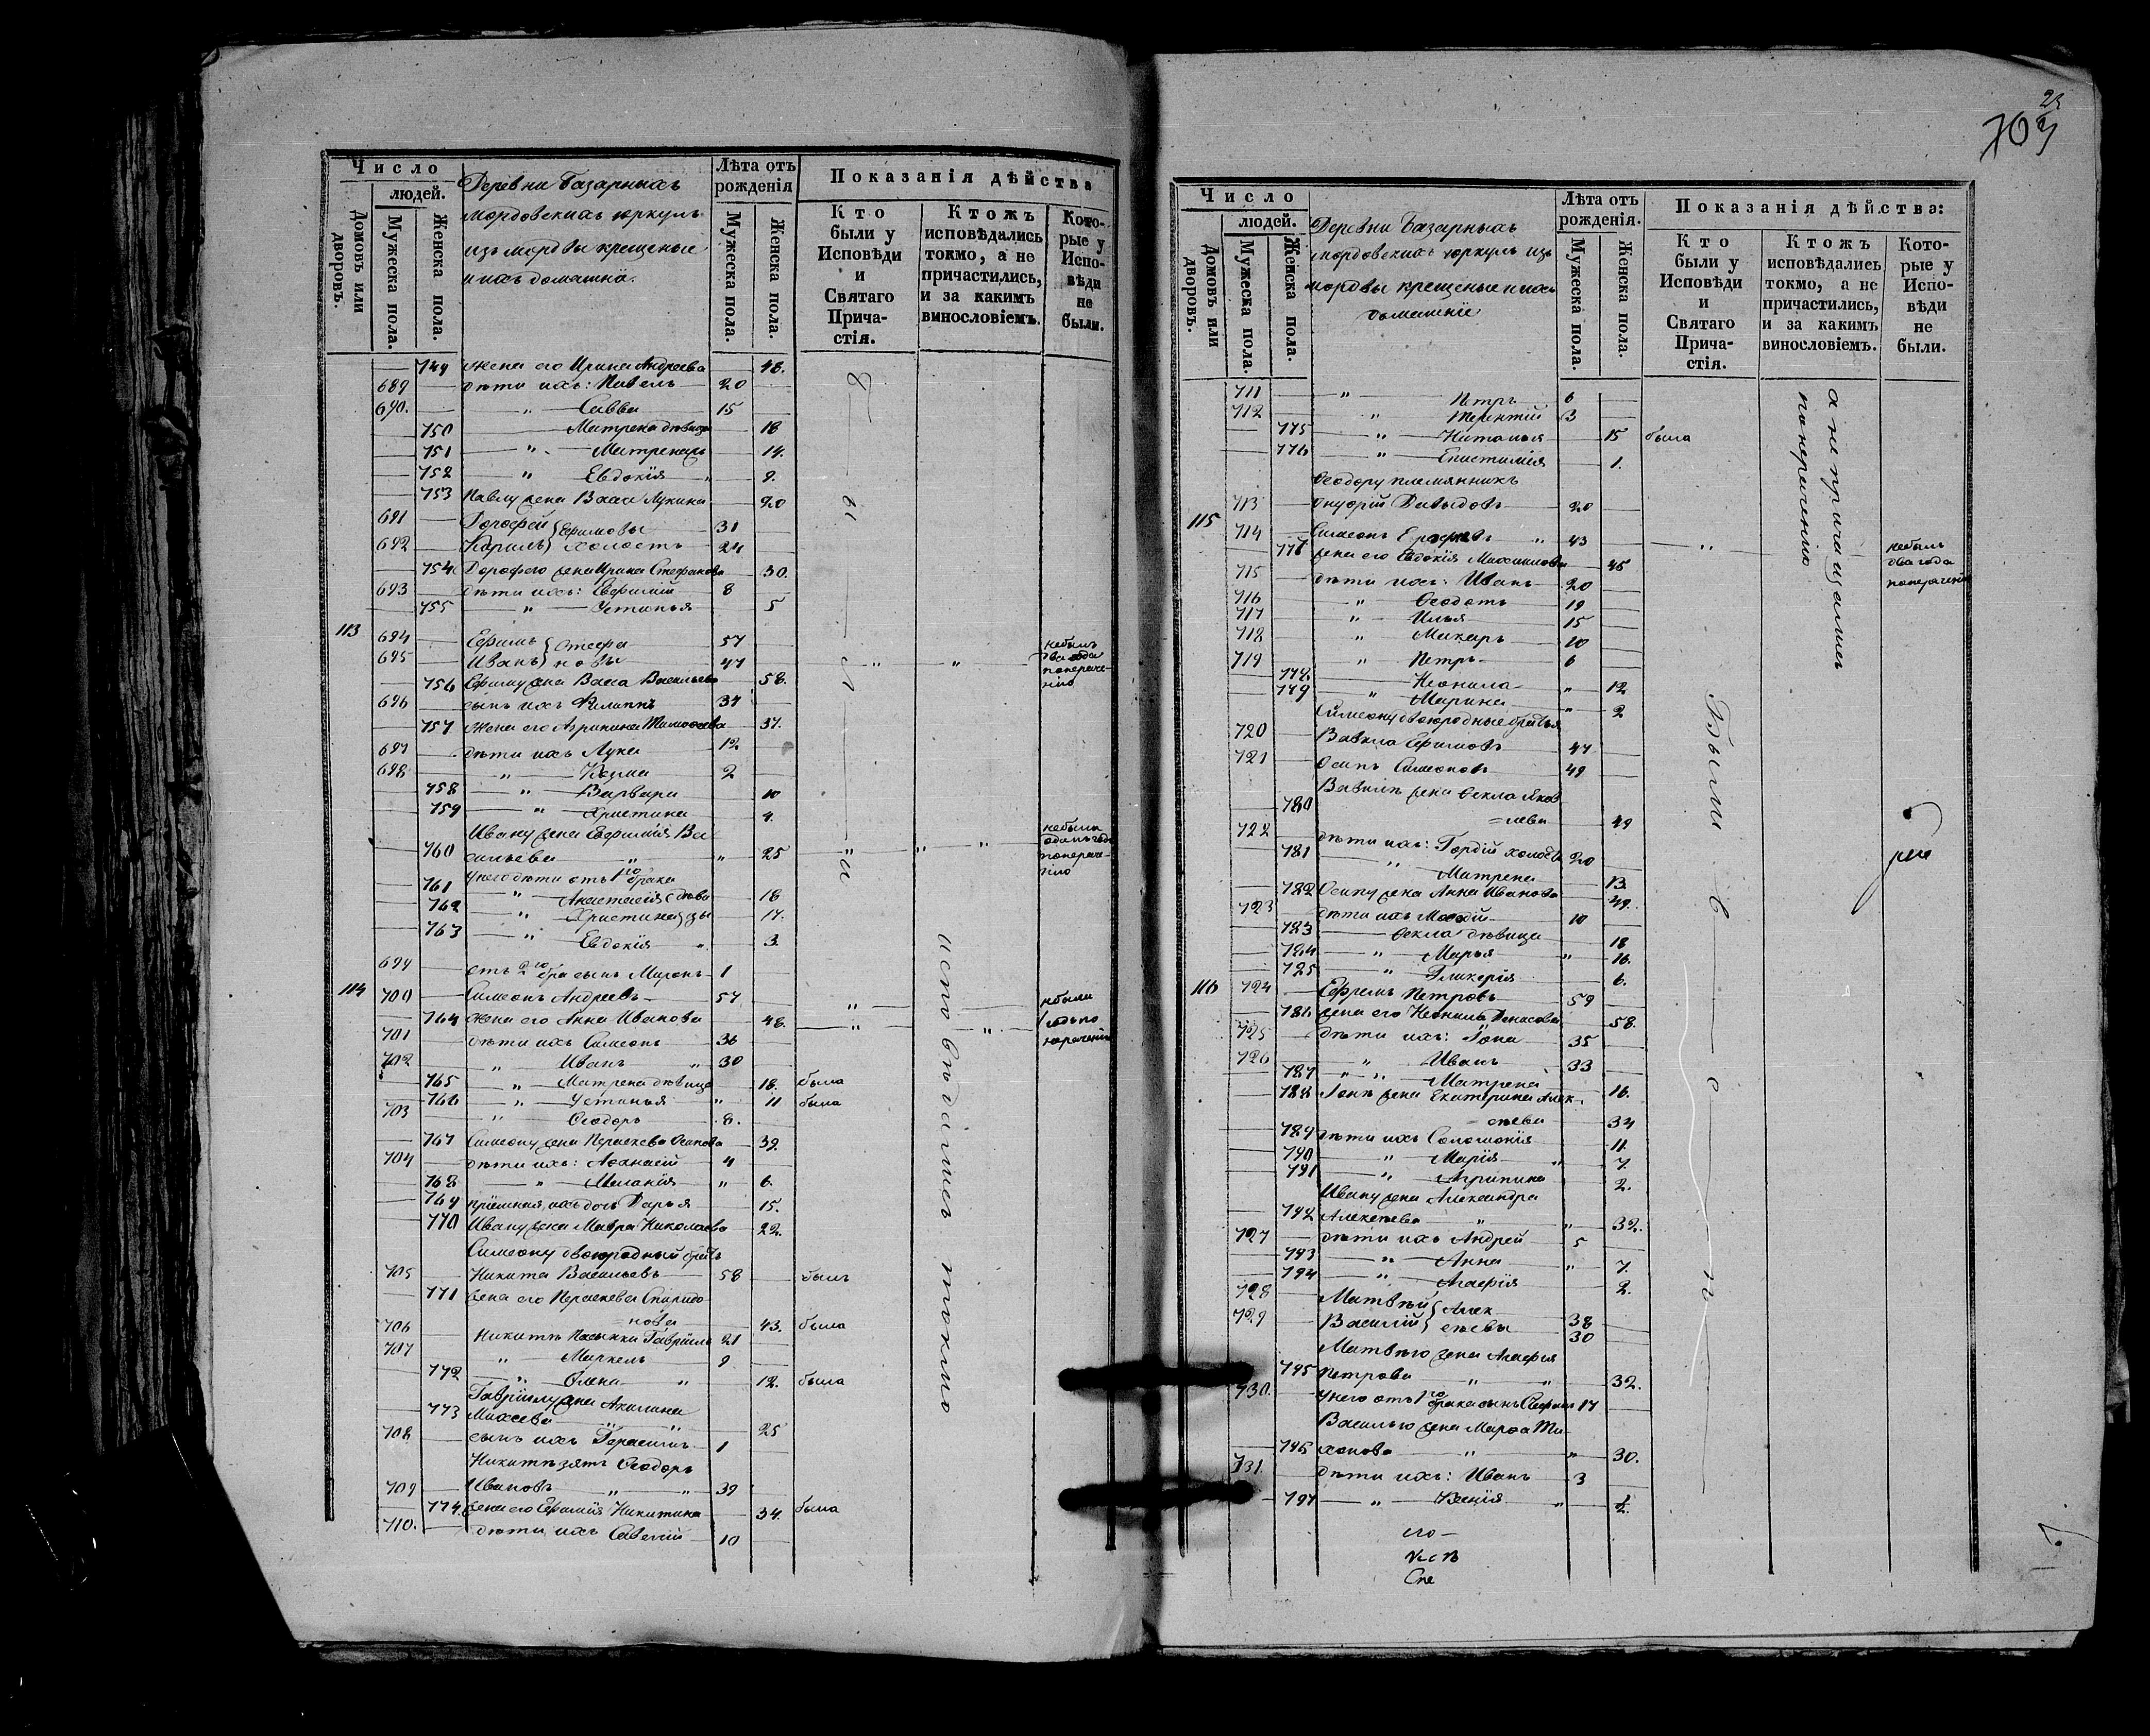 Число
людей.
Домовъ или дворовъ.
Мужеска пола.
Женска пола.
Деревни Базарныхъ
мордовскихъ юркуль
изъ мордвы крещеные
и ихъ домашнiи.
Лѣта отъ рожденія
Мужеска пола.
Женска пола.
Показанія дѣйства
Кто были у Исповѣди и Святаго Прича-стія.
Ктожъ исповѣдались токмо, а не причастились, и за какимъ винословіемъ.
Кото-рые у Испо-вѣди не были.
749 жена его Ирина Андреева 48.
689 дѣти ихъ: Павелъ 20
690. " Савва 15
750 Матрена дѣвица 18
751 " Матрена 14.
752 " Евдокія 9.
753 Павлу жена Васса Лукина 20
691 Дорофей } Ефимовы 31
692 Кирилъ } холостъ 24
754 Дорофею жена Ирина Стефанова 30.
693 дѣти ихъ: Евфимій 8
755 " Устинья 5
113 694 Ефимъ } Стефа 57
695 Иванъ } новы 47 " " небылъ два года понераче-нію
756 Ефиму жена Васса Васильева 58.
696 сынъ ихъ Филиппъ 37
757 жена его Агрипина Тимофеева 37.
697 дѣти ихъ Лука 12
698 " Козма 2
758 " Варвара 10
759 " Христина 9.
Ивану жена Евфимія Ва
760 сильева " " 25 " " " небыла одинъ годъ понераче-нію
у него дѣти отъ 1го брака
761 " Анастасія } дѣви 18
762 " Христина } цы 17.
763 " Евдокія " 3
699 отъ 2го бра сынъ Миронъ 1
114 700 Симеонъ Андреевъ 57 " небыли
764 жена его Анна Иванова 48. " " 1 годъ по нерачению
701 дѣти ихъ Симеонъ 36
702 " Иванъ " 30
765 " Матрена дѣвица 18. была
766 " Устинья " 11 была
703 " Ѳеодоръ 8.
767 Симеону жена Параскева Осипова 39.
704 дѣти ихъ: Афанасій 4
768 " Меланія " 6.
769 пріемная ихъ дочь Дарья 15.
770 Ивану жена Мавра Николаева 22.
Симеону двоюродный братъ
705 Никита Васильевъ 58 былъ
771 жена его Параскева Спиридо
нова 43. была
706 Никитѣ пасынки Гавріилъ 21
707 " Маркелъ 9
772 " Олена " 12. была
Гавріилу жена Акилина
773 Михеева " 25
708 сынъ ихъ Герасимъ 1
Никитѣ зять Ѳеодоръ
709 Ивановъ " " 39
774 жена его Ефимія Никитина 34. была
710. дѣти ихъ Савелій 10
исповѣдались токмо
Число
людей.
Домовъ или дворовъ.
Мужеска пола.
Женска пола.
Деревни Базарныхъ
мордовскихъ юркуль изъ
мордвы крещеные и ихъ
домашніе
Лѣта отъ рожденія.
Мужеска пола.
Женска пола.
Показанія дѣйства:
Кто были у Исповѣди и Святаго Прича-стія.
Ктожъ исповѣдались токмо, а не причастились, и за какимъ винословіемъ.
Кото-рые у Испо-вѣди не были.
711 " Петръ 6
712 " Терентій 3
775 " Наталья 15 была
776 " Епистимія 1.
Ѳеодору племянникъ
713 Онуфрій Давыдовъ 20
115 714 Симеонъ " 43 " небылъ два года понерачению
777 жена его Евдокія Максимова 45
715 дѣти ихъ: Иванъ 20
716 " Ѳеодотъ 19
717 " Илья 15
718 " Макаръ 10
719 " Петръ 6
778 Неонила " 12
779 " Марина " 2
Симеону двоюродные братья
720 Вавила Ефимовъ 47
721 Осипъ Симеоновъ 49
Вавилѣ жена Ѳекла Яков
780 =лева 49
722 дѣти ихъ: Гордій холостъ 20
781 " Матрена 13.
782 Осипу жена Анна Иванова 49.
723 дѣти ихъ Мокій 10
783 Ѳекла дѣвица 18
784 " Марья " 16.
785 " Гликерія 6.
116 724 Ефремъ Петровъ 59
786 жена его Неонила Денисова 58.
725 дѣти ихъ: Іона 35
726 " Иванъ 33
787 " " Матрена 16.
788 Іонѣ жена Екатерина Алек-
сѣева 34
789 дѣти ихъ Соломонія 11
790 " Марія " 7.
791 " Агрипина 2.
Ивану жена Александра
792 Алексѣева " " 32.
727 дѣти ихъ Андрей 5
793 " Анна " 7.
794 " Агафія 2.
728 Матвѣй } Алек 38
729 Василій } сѣевы 30
Матвѣю жена Агафія
795 Петрова " " 32.
730. у него отъ 1го брака сынъ Стефанъ 17
Василью жена Марфа Ти-
796 хонова " " 30.
731. дѣти ихъ: Иванъ 3
797 " Ксенія " 2.
а не причащались
понерачению
Были